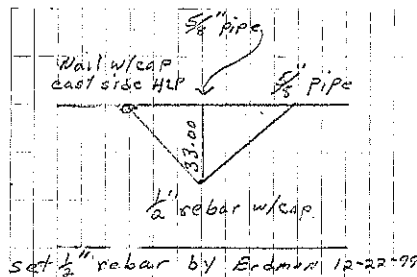 5/8" pipe
Nail w/cap
east side H2P
5/8" pipe
33.00
1/2" rebar w/cap
set 1/2" rebar by Erdman 12-22-98